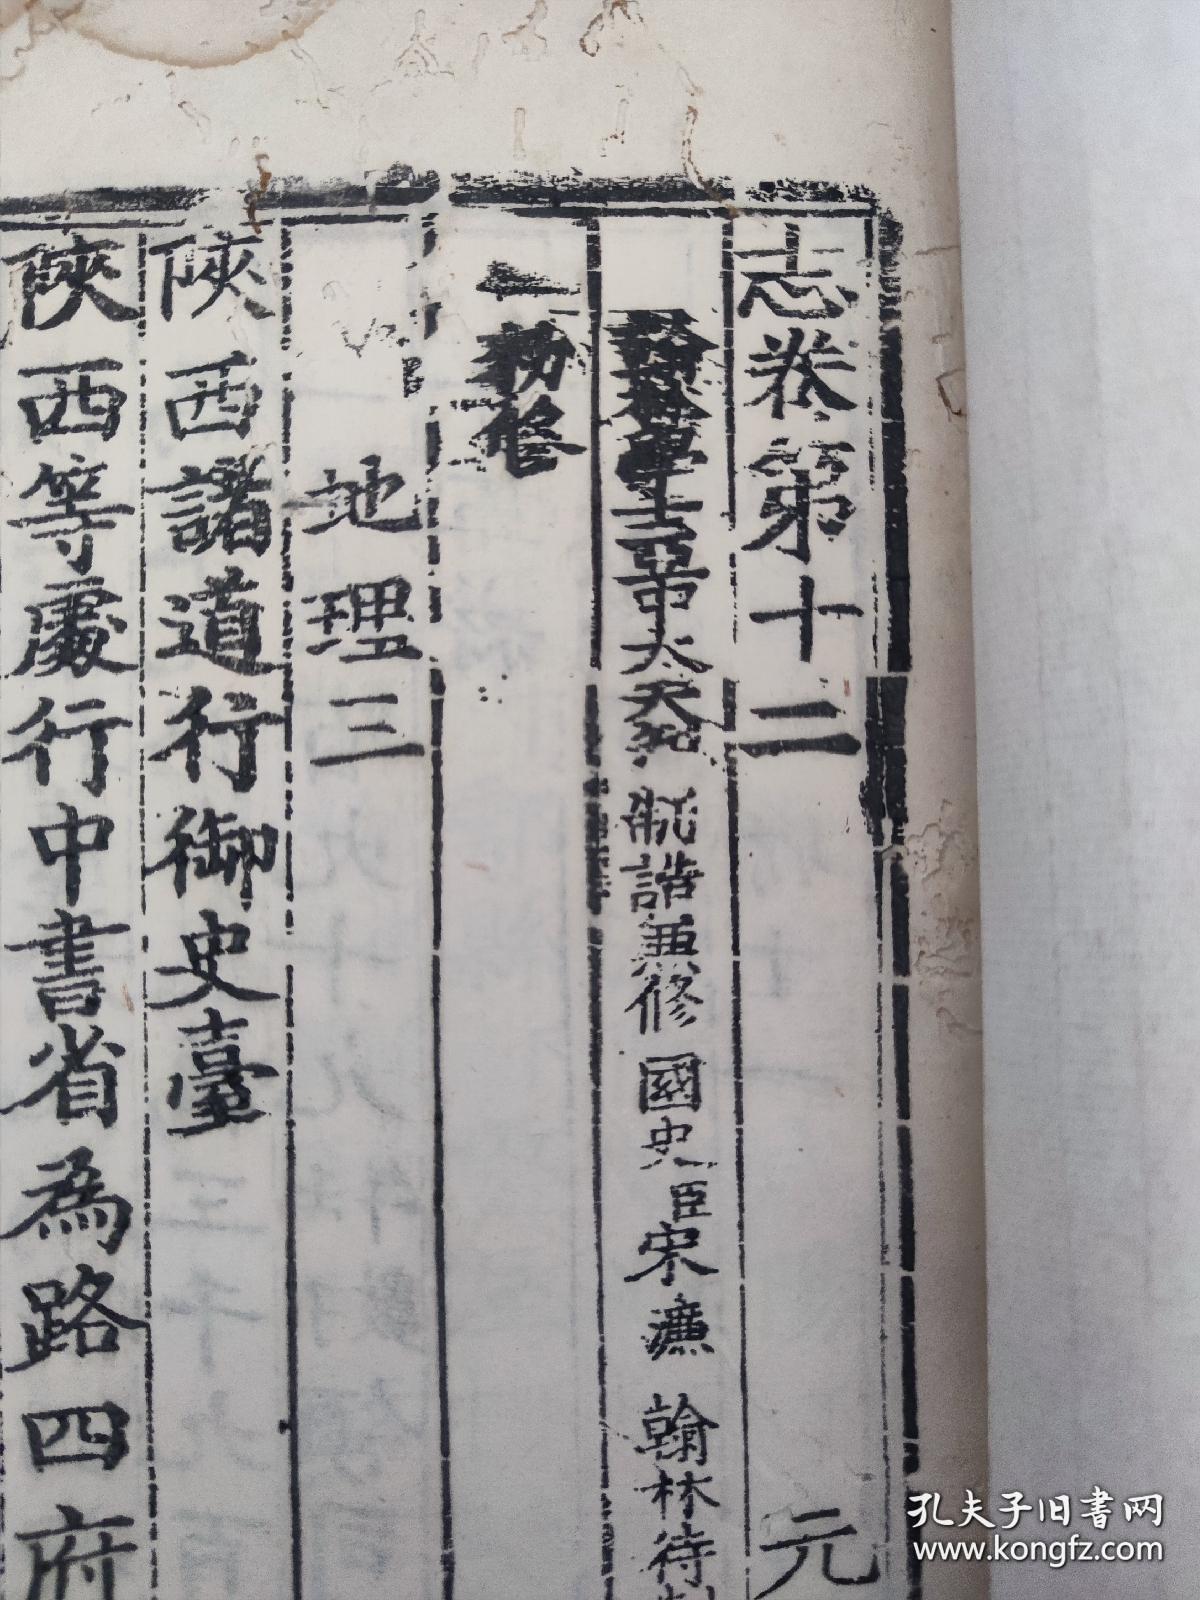 志卷第十二 元
翰林學士亞中大夫知 制誥兼修 國史臣宋濂 翰林待制
敕修
地理三
陝西諸道行御史臺
陝西等處行中書省為路四府
孔夫子旧书网
www.kongfz.com